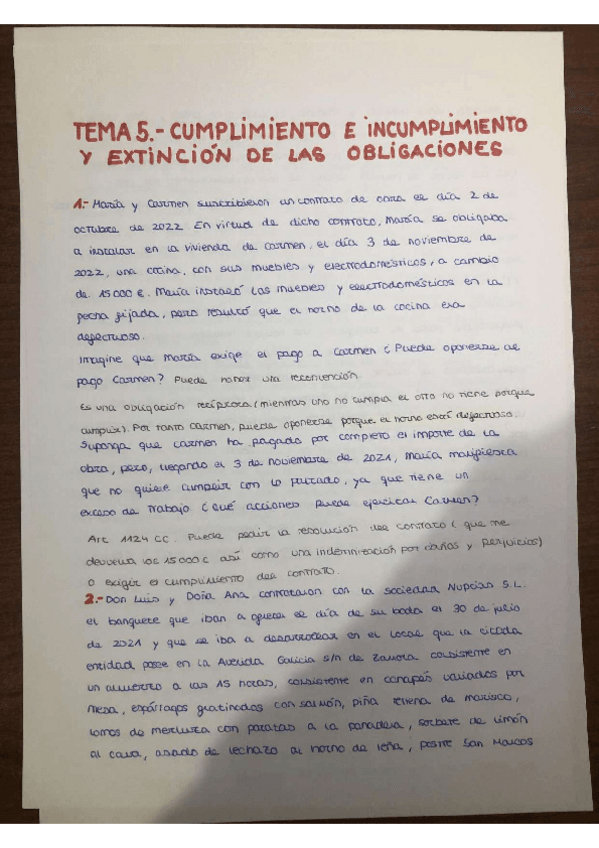 TEMA 5.- CUMPLIMIENTO E INCUMPLIMIENTO
Y EXTINCIÓN DE LAS OBLIGACIONES
1.- María y Carmen suscribieron un contrato de obra el día 2 de
octubre de 2022. En virtud de dicho contrato, María se obligaba
a instalar en la vivienda de Carmen, el día 3 de noviembre de
2022, una cocina, con sus muebles y electrodomésticos, a cambio
de 15000 €. María instaló los muebles y electrodomésticos en la
fecha fijada, pero resultó que el horno de la cocina era
defectuoso.
Imagine que María exige el pago a Carmen ¿Puede oponerse al
pago Carmen? Puede haber una reconvención
Es una obligación recíproca (mientras uno no cumpla el otro no tiene porque
cumplir). Por tanto Carmen, puede oponerse porque el horno está defectuoso.
Suponga que Carmen ha pagado por completo el importe de la
obra, pero, llegando el 3 de noviembre de 2021, María manifiesta
que no quiere cumplir con lo pactado, ya que tiene un
exceso de trabajo ¿Qué acciones puede ejercitar Carmen?
Art 1124 CC. Puede pedir la resolución del contrato (que me
devuelva los 15000 € así como una indemnización por daños y perjuicios)
o exigir el cumplimiento del contrato.
2.- Don Luis y Doña Ana contrataron con la sociedad Nupcias S.L.
el banquete que iban a ofrecer el día de su boda el 30 de julio
de 2021 y que se iba a desarrollar en el local que la citada
entidad posee en la Avenida Galicia s/n de Zamora consistente en
un almuerzo a las 15 horas, consistente en canapés variados por
mesa, espárragos gratinados con salmón, piña rellena de marisco,
lomos de merluza con patatas a la panadera, sorbete de limón
al cava, asado de lechazo al horno de leña, postre San Marcos